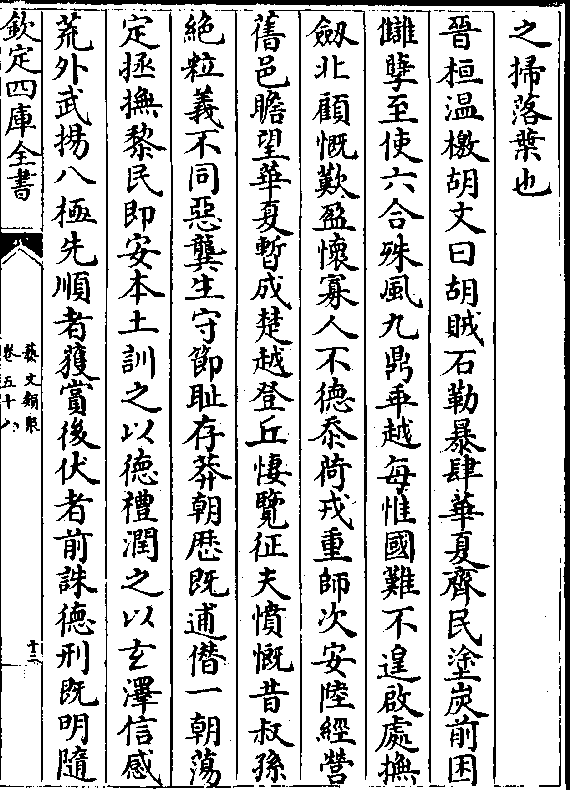 之掃落葉也
晉桓温檄胡文曰胡賊石勒暴肆華夏齊民塗炭前困
讎孽至使六合殊風九鼎乖越每惟國難不遑啟處撫
劔北顧慨歎盈懷寡人不德忝荷戎重師次安陸經營
舊邑瞻望華夏暫成楚越登丘悽覽征夫憤慨昔叔孫
絶粒義不同惡龔生守節耻存莽朝厯既逋僭一朝蕩
定拯撫黎民即安本土訓之以德禮潤之以玄澤信感
荒外武揚八極先順者獲賞後伏者前誅德刑既明隨
欽定四庫全書
藝文類聚
卷五十八
十三